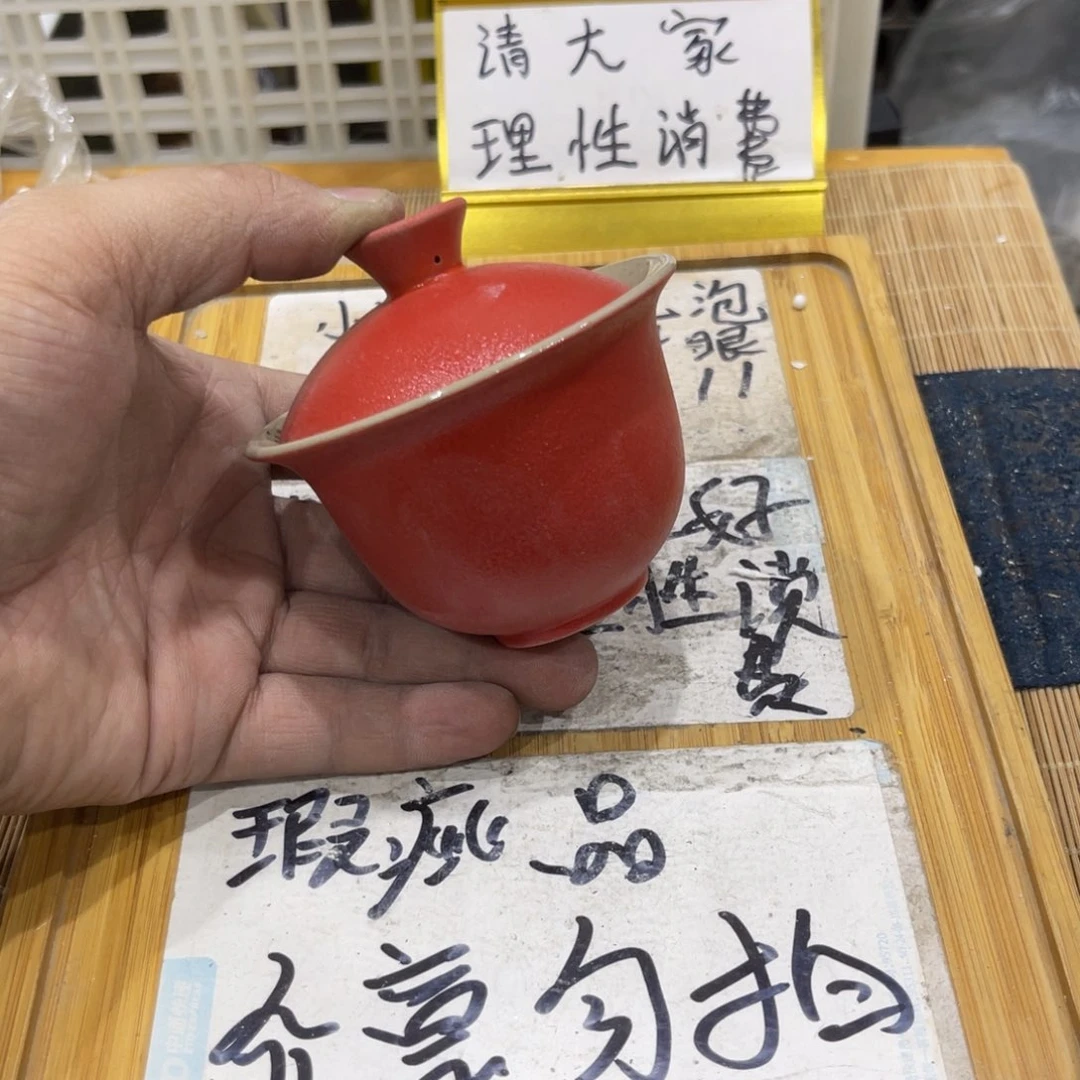 清大家
理性消费
小
泡
眼
好
性消
费
瑕疵品
介意勿拍